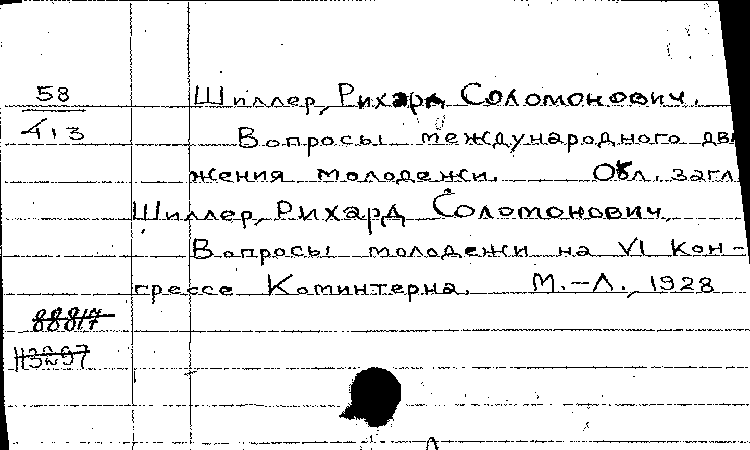 58
413
Шиллер, Рихард Соломонович.
Вопросы международного дви
жения молодежи. Обл. загл
Шиллер, Рихард Соломонович
Вопросы молодежи на VI Кон-
грессе Коминтерна. М.-Л., 1928
88817
113297